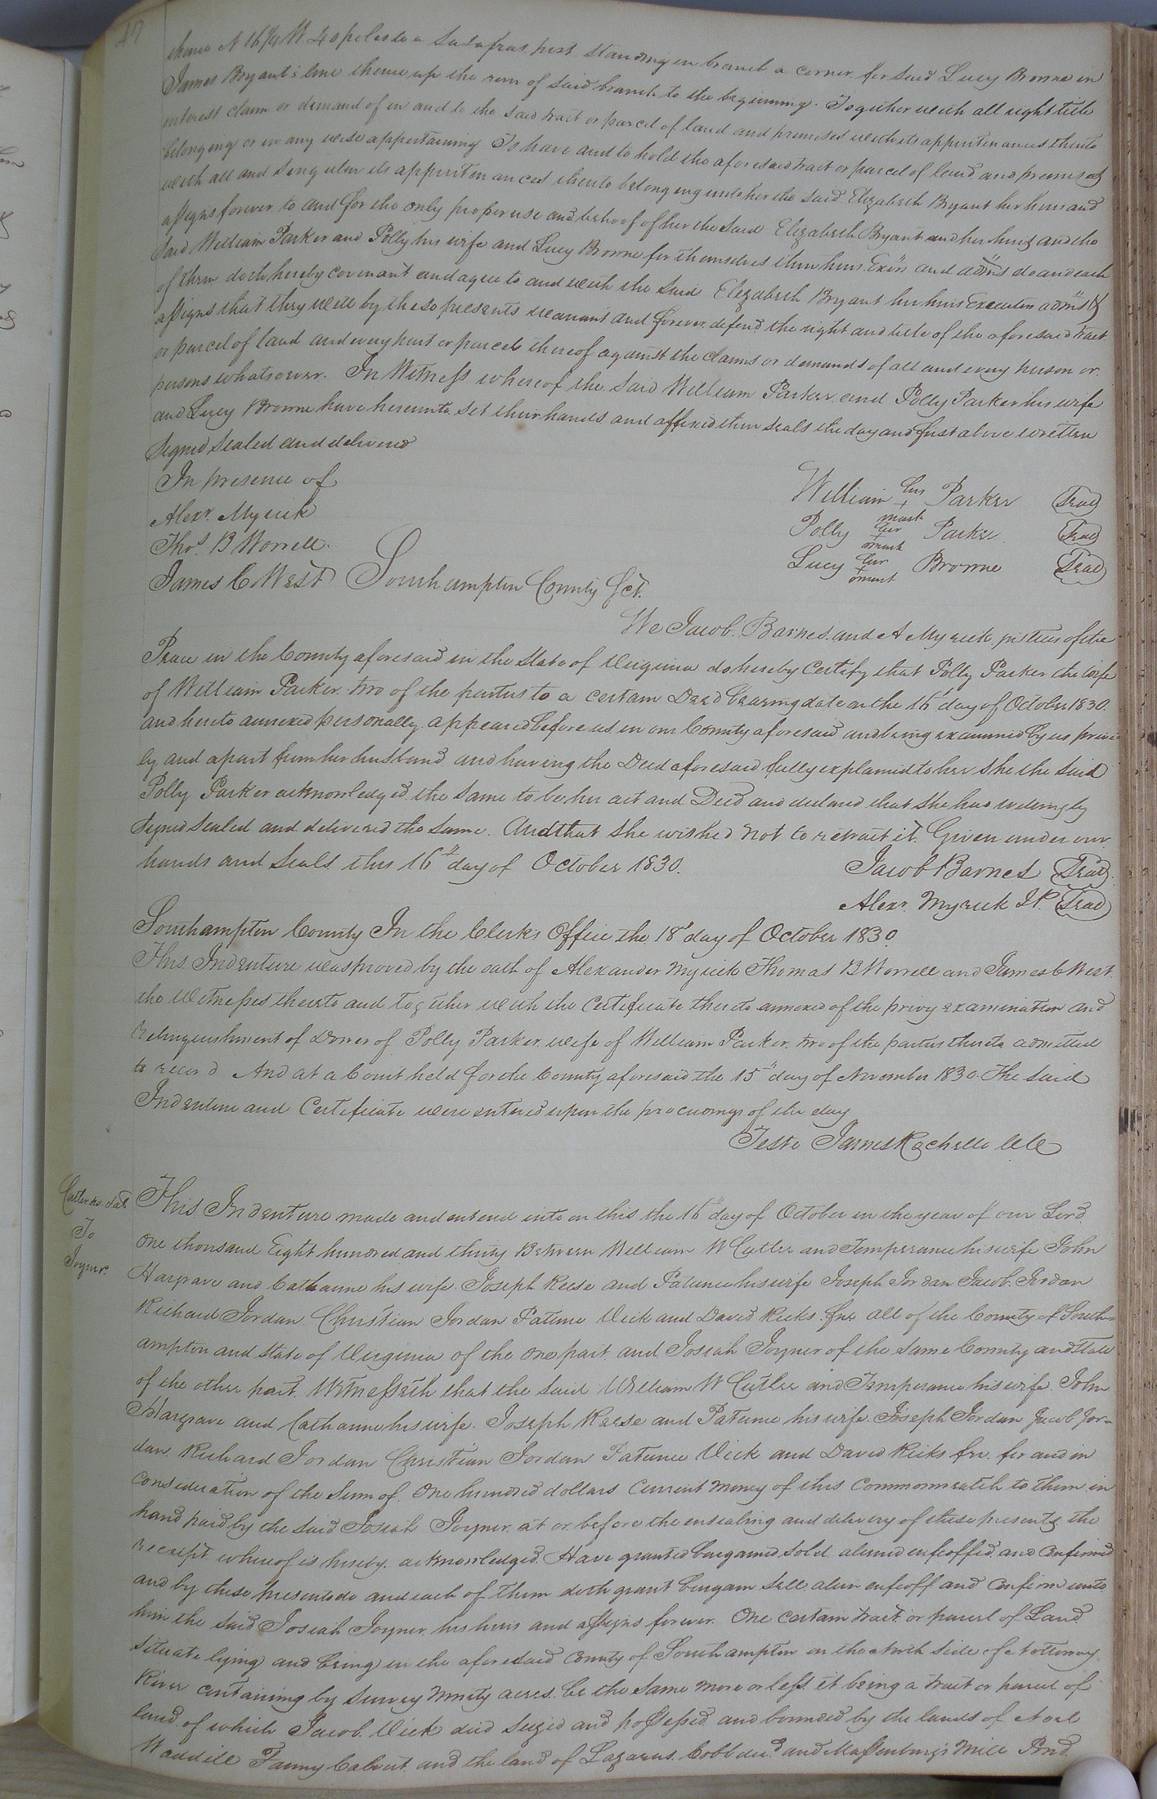 47
thence N 16¼ W 40 poles to a Sassafras post standing in branch a corner for said Lucy Browne in
James Bryant's line thence up the run of said branch to the beginning. Together with all right title
interest claim or demand of in and to the said tract or parcel of land and premises with its appurtenances thereto
belonging or in any wise appertaining To have and to hold the aforesaid tract or parcel of land and premises
with all and singular its appurtenances thereto belonging unto her the said Elizabeth Bryant her heirs and
assigns forever to and for the only proper use and behoof of her the said Elizabeth Bryant and her heirs and the
said William Parker and Polly his wife and Lucy Browne for themselves their heirs Exors and admrs do and each
of them doth hereby covenant and agree to and with the said Elizabeth Bryant her heirs Executors admrs &
assigns that they will by these presents warrant and forever defend the right and title of the aforesaid tract
or parcel of land and every part or parcel thereof against the claims or demands of all and every person or
persons whatsoever. In Witness whereof the said William Parker and Polly Parker his wife
and Lucy Browne have hereunto set their hands and affixed their seals the day and first above written
Signed sealed and delivered
In presence of
William his + mark Parker Seal
Alexr. Myrick
Polly her + mark Parker Seal
Thos. B Worrell
Lucy her + mark Browne Seal
James C West
Southampton County Sct.
We Jacob Barnes and A Myrick justices of the
Peace in the County aforesaid in the State of Virginia do hereby Certify that Polly Parker the wife
of William Parker two of the parties to a certain Deed bearing date on the 16th day of October 1830.
and hereto annexed personally appeared before us in our County aforesaid and being examined by us privi
ly and apart from her husband and having the Deed aforesaid fully explained to her She the said
Polly Parker acknowledged the same to be her act and Deed and declared that she has willingly
signed sealed and delivered the same. And that she wished not to retract it. Given under our
hands and seals this 16th day of October 1830.
Jacob Barnes Seal
Alexr. Myrick J.P. Seal
Southampton County In the Clerks Office the 18th day of October 1830.
This Indenture was proved by the oath of Alexander Myrick Thomas B Worrell and James C West
the Witnesses thereto and together with the Certificate thereto annexed of the privy examination and
relinquishment of Dower of Polly Parker wife of William Parker two of the parties thereto admitted
to record And at a Court held for the County aforesaid the 15th day of November 1830. The said
Indenture and Certificate were entered upon the proceedings of the day
Teste James Rochelle ClC
To
Joyner.
This Indenture made and entered into on this the 16th day of October in the year of our Lord
One thousand Eight hundred and thirty Between William W Cutler and Temperance his wife John
Hargrave and Catharine his wife Joseph Reese and Patience his wife Joseph Jordan Jacob Jordan
Richard Jordan Christian Jordan Patience Vick and David Ricks Jnr. all of the County of South=
ampton and State of Virginia of the one part and Josiah Joyner of the same County and State
of the other part Witnesseth that the said William W Cutler and Temperance his wife John
Hargrave and Catharine his wife Joseph Reese and Patience his wife Joseph Jordan Jacob Jor=
dan Richard Jordan Christian Jordan Patience Vick and David Ricks Jnr. for and in
consideration of the Sum of One hundred dollars Current money of this Commonwealth to them in
hand paid by the said Josiah Joyner at or before the ensealing and delivery of these presents the
receipt whereof is hereby acknowledged Have granted bargained sold aliened enfeoffed and confirmed
and by these presents do and each of them doth grant bargain sell alien enfeoff and confirm unto
him the said Josiah Joyner his heirs and assigns forever. One certain tract or parcel of Land
situate lying and being in the aforesaid County of Southampton on the North side of Nottoway
River containing by survey ninety acres be the same more or less it being a tract or parcel of
land of which Jacob Vick died seized and possessed and bounded by the lands of
Fanny Calvert and the land of Lazarus Cobb decd and Massenburg's Mill Pond